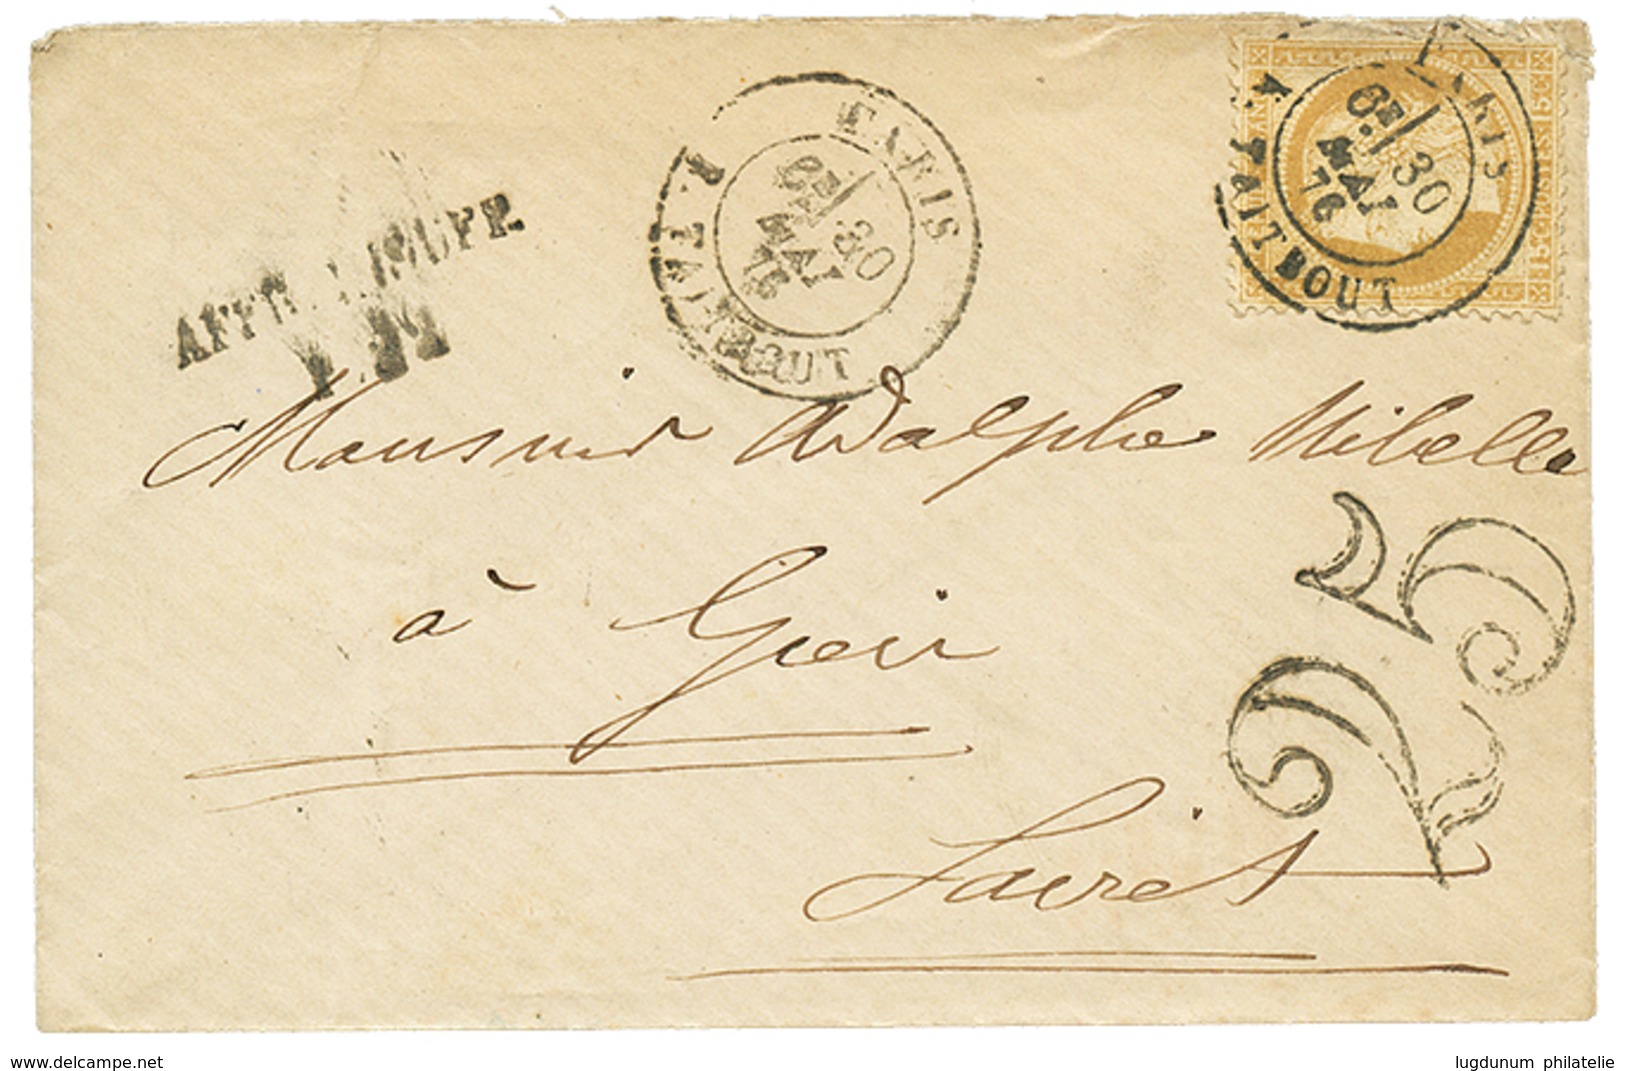 PARIS
6E
30
MAI
76
R. TAITBOUT
PARIS
6E
30
MAI
76
R. TAITBOUT
15c POSTES 15c
AFFR. INSUFF.
P.P.
Monsieur Adolphe Mibelle
à Gien
Loiret
25
www.delcampe.net
lugdunum philatelie